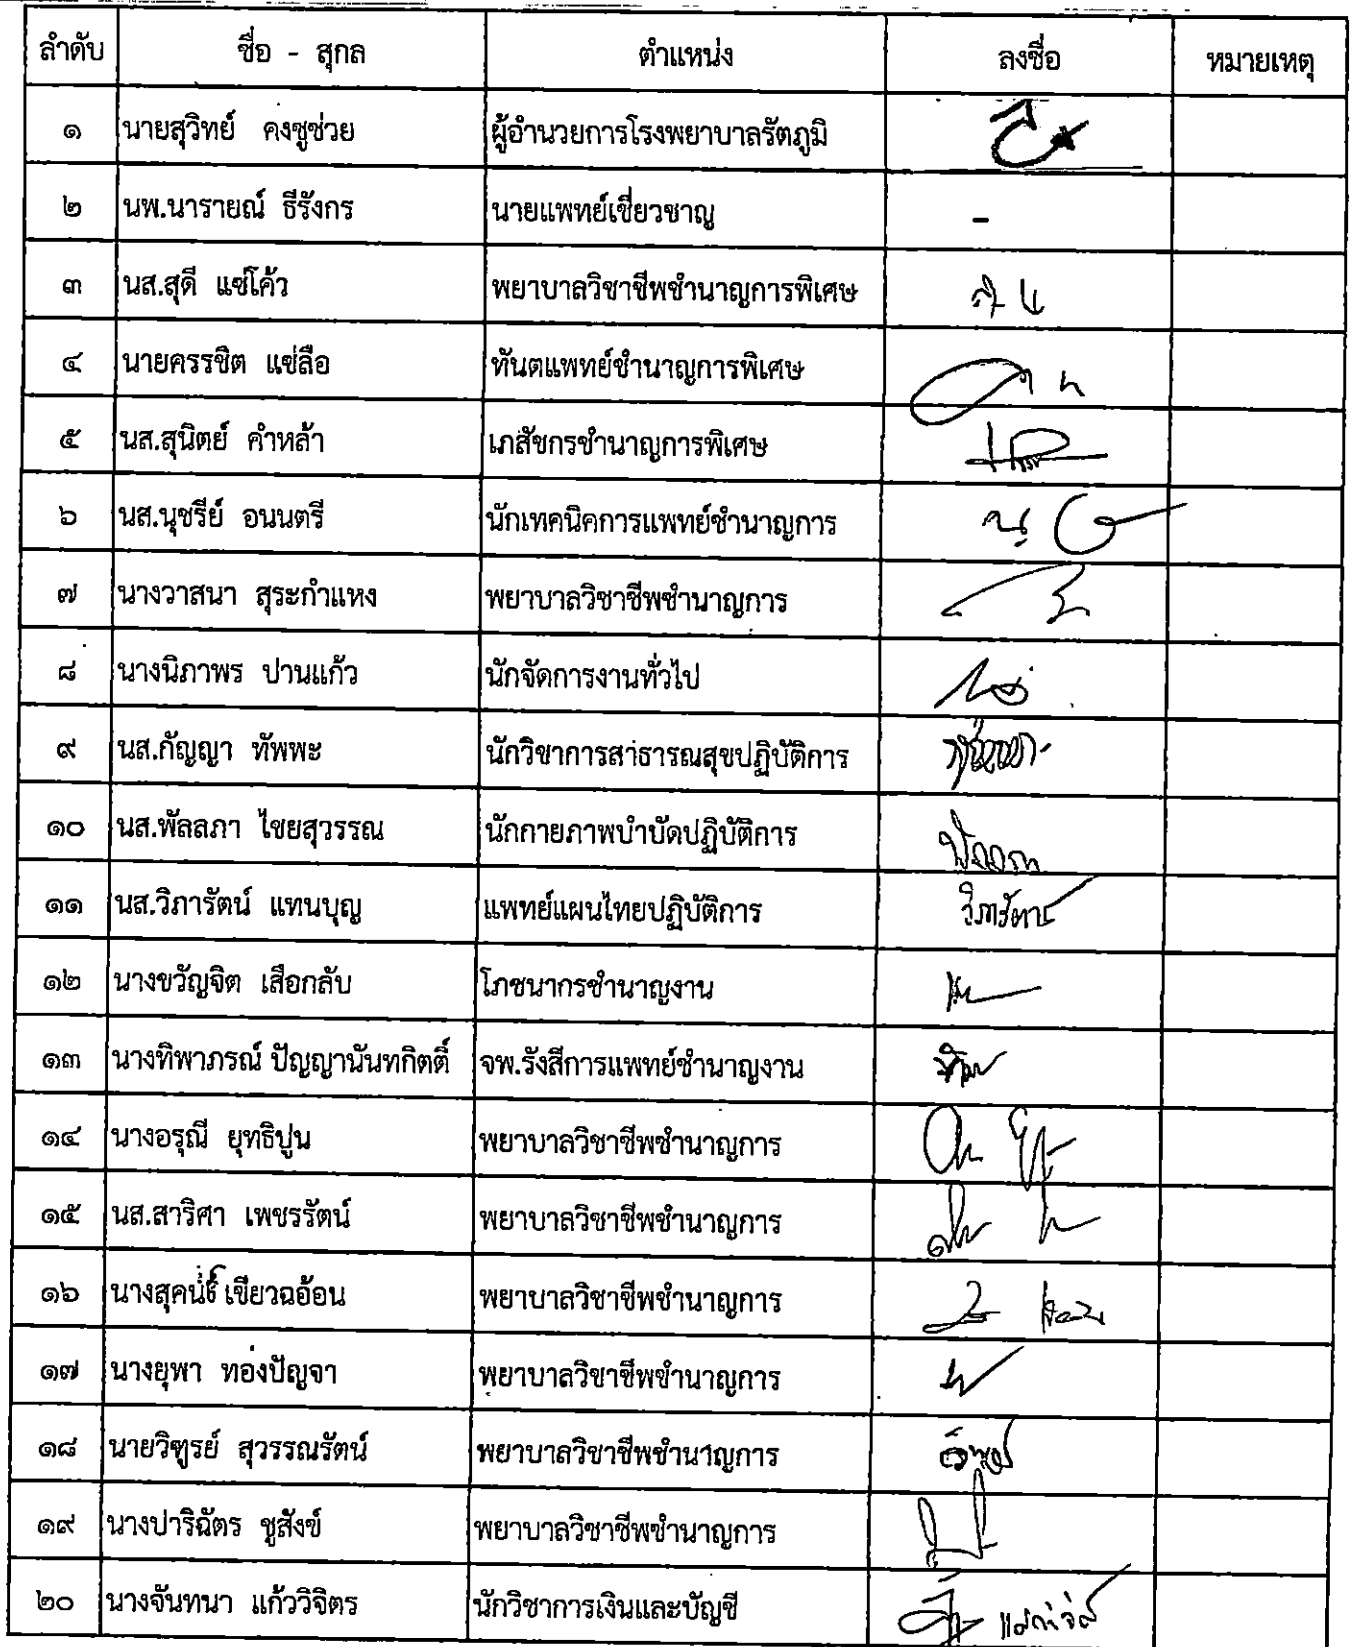 ลำดับ ชื่อ - สุกล ตำแหน่ง ลงชื่อ หมายเหตุ
๑ นายสุวิทย์ คงชูช่วย ผู้อำนวยการโรงพยาบาลรัตภูมิ
๒ นพ.นารายณ์ ธีรังกร นายแพทย์เชี่ยวชาญ -
๓ นส.สุดี แซ่โค้ว พยาบาลวิชาชีพชำนาญการพิเศษ
๔ นายครรชิต แซ่ลือ ทันตแพทย์ชำนาญการพิเศษ
๕ นส.สุนิตย์ คำหล้า เภสัชกรชำนาญการพิเศษ
๖ นส.นุชรีย์ อนนตรี นักเทคนิคการแพทย์ชำนาญการ
๗ นางวาสนา สุระกำแหง พยาบาลวิชาชีพชำนาญการ
๘ นางนิภาพร ปานแก้ว นักจัดการงานทั่วไป
๙ นส.กัญญา ทัพพะ นักวิชาการสาธารณสุขปฏิบัติการ
๑๐ นส.พัลลภา ไชยสุวรรณ นักกายภาพบำบัดปฏิบัติการ
๑๑ นส.วิภารัตน์ แทนบุญ แพทย์แผนไทยปฏิบัติการ วิภารัตน์
๑๒ นางขวัญจิต เสือกลับ โภชนากรชำนาญงาน
๑๓ นางทิพาภรณ์ ปัญญานันทกิตติ์ จพ.รังสีการแพทย์ชำนาญงาน
๑๔ นางอรุณี ยุทธิปูน พยาบาลวิชาชีพชำนาญการ
๑๕ นส.สาริศา เพชรรัตน์ พยาบาลวิชาชีพชำนาญการ
๑๖ เขียวฉอ้อน พยาบาลวิชาชีพชำนาญการ
๑๗ นางยุพา ทองปัญจา พยาบาลวิชาชีพชำนาญการ
๑๘ นายวิฑูรย์ สุวรรณรัตน์ พยาบาลวิชาชีพชำนาญการ
๑๙ นางปาริฉัตร ชูสังข์ พยาบาลวิชาชีพชำนาญการ
๒๐ นางจันทนา แก้ววิจิตร นักวิชาการเงินและบัญชี